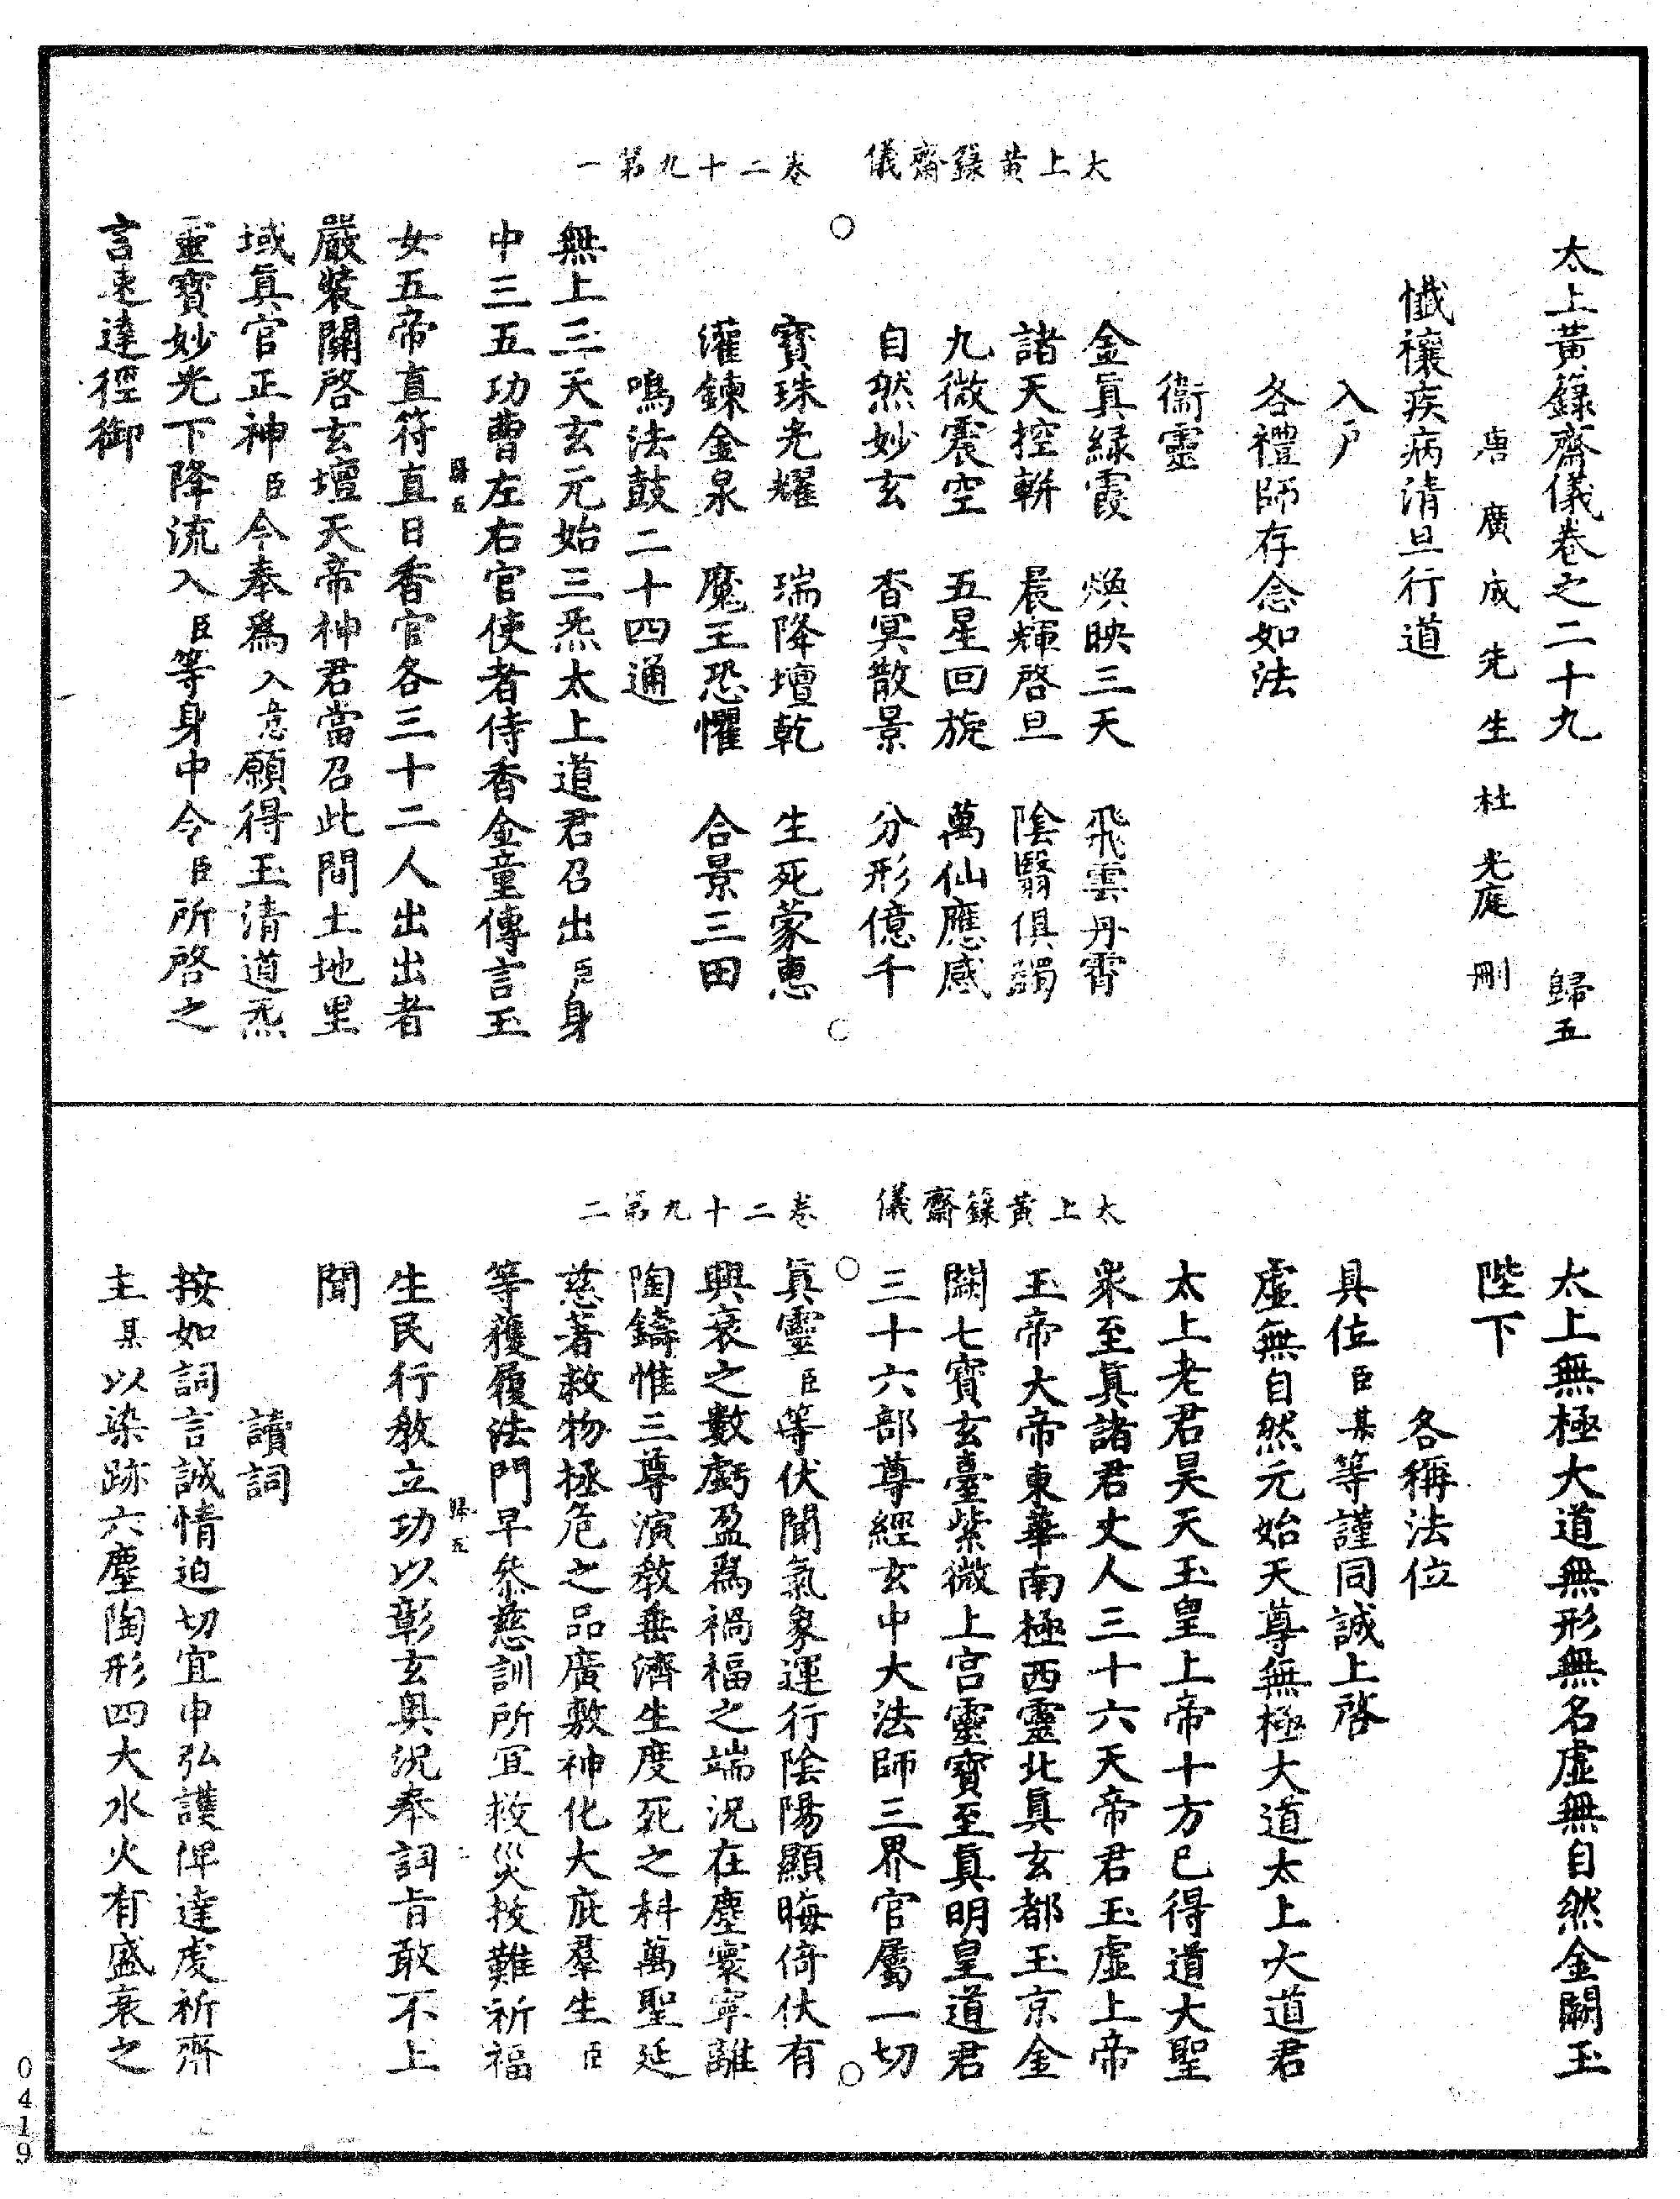 太上黃籙齋儀 卷二十九第一
太上黃籙齋儀卷之二十九 歸五
唐廣成先生杜光庭刪
懺禳疾病清旦行道
入戶
各禮師存念如法
衞靈
金眞綠霞 煥映三天 飛雲丹霄
諸天控軿 晨輝啓旦 陰翳俱蠲
九微震空 五星回旋 萬仙應感
自然妙玄 杳冥散景 分形億千
寶珠光耀 瑞降壇乾 生死蒙惠
灌鍊金泉 魔王恐懼 合景三田
鳴法鼓二十四通
無上三天玄元始三炁太上道君召出臣身
中三五功曹左右官使者侍香金童傳言玉
歸五
女五帝直符直日香官各三十二人出出者
嚴裝關啓玄壇天帝神君當召此間土地里
域眞官正神臣今奉爲入意願得玉清道炁
靈寶妙光下降流入臣等身中令臣所啓之
言速達徑御
太上黃籙齋儀 卷二十九第二
太上無極大道無形無名虛無自然金闕玉
陛下
各稱法位
具位臣某等謹同誠上啓
虛無自然元始天尊無極大道太上大道君
太上老君昊天玉皇上帝十方已得道大聖
衆至眞諸君丈人三十六天帝君玉虛上帝
玉帝大帝東華南極西靈北眞玄都玉京金
闕七寶玄臺紫微上宮靈寶至眞明皇道君
三十六部尊經玄中大法師三界官屬一切
眞靈臣等伏聞氣象運行陰陽顯晦倚伏有
興衰之數虧盈爲禍福之端況在塵寰寧離
陶鑄惟三尊演教垂濟生度死之科萬聖延
慈著救物拯危之品廣敷神化大庇羣生臣
等獲履法門早叅慈訓所宜救災拔難祈福
歸五
生民行教立功以彰玄奧況奉詞旨敢不上
聞
讀詞
按如詞言誠情迫切宜申弘護俾達虔祈齋
主某以染跡六塵陶形四大水火有盛衰之
0419